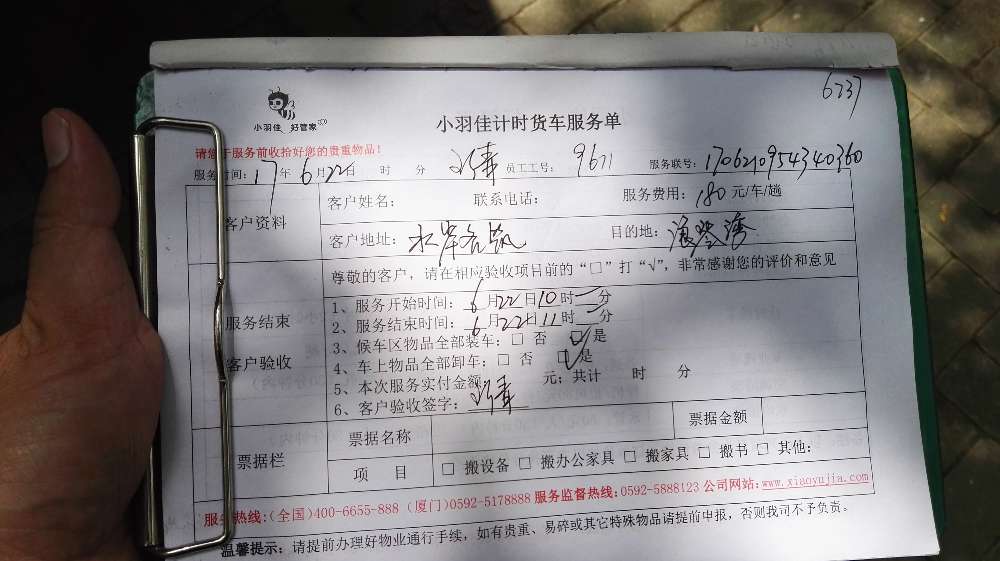 6237
小羽佳 好管家
小羽佳计时货车服务单
请您于服务前收拾好您的贵重物品!
服务时间: 17年 6月 22日 时 分 员工工号: 9611 服务联号: 1706210954340360
客户资料
客户姓名: 联系电话: 服务费用: 180 元/车/趟
客户地址: 水岸名筑 目的地:
尊敬的客户,请在相应验收项目前的“□”打“√”,非常感谢您的评价和意见
服务结束
客户验收
1、服务开始时间: 6月22日10时 分
2、服务结束时间: 6月22日11时 分
3、候车区物品全部装车: □ 否 ☑ 是
4、车上物品全部卸车: □ 否 ☑ 是
5、本次服务实付金额 元; 共计 时 分
6、客户验收签字:
票据栏
票据名称 票据金额
项 目 □ 搬设备 □ 搬办公家具 □ 搬家具 □ 搬书 □ 其他:
服务热线:(全国)400-6655-888 (厦门)0592-5178888 服务监督热线:0592-5888123 公司网站:www.xiaoyujia.com
温馨提示: 请提前办理好物业通行手续,如有贵重、易碎或其它特殊物品请提前申报,否则我司不予负责。